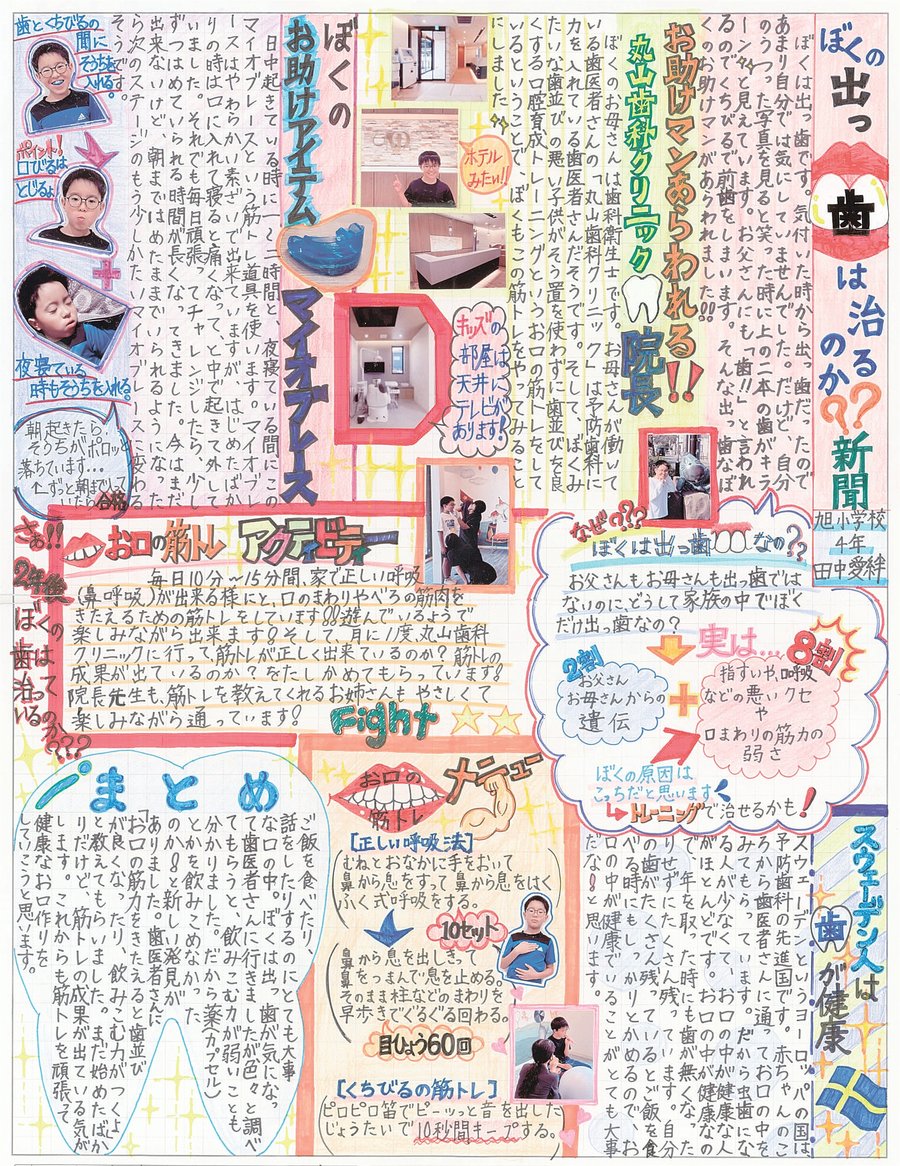 ぼくの出っ歯は治るのか??新聞
旭小学校
4年
田中愛絆
ぼくは出っ歯です。気付いた時から出っ歯だったので
あまり自分では気にしていませんでした。だけど、自分
のうつった写真を見ると笑った時に上の二本の歯がキラ
ーンと見えています。お父さんにも「歯!!」と言われ
るのでくちびるで前歯をしまいます。そんな出っ歯なぼ
くのお助けマンがあらわれました!!
お助けマンあらわれる!!
丸山歯科クリニック院長
ぼくのお母さんは歯科衛生士です。お母さんが働いて
いる歯医者さんの「丸山歯科クリニック」は予防歯科に
力を入れている歯医者さんだそうです。そして、ぼくみ
たいな歯並びの悪い子供がそう置を使わずに歯並びを良
くする口腔育成トレーニングというお口の筋トレをして
いるということで、ぼくもこの筋トレをやってみること
にしました
ホテル
みたい!!
キッズの
部屋は
天井に
テレビが
あります!
ぼくの
お助けアイテム マイオブレース
一日中起きている時に一〜二時間と、夜寝ている間にこの
マイオブレースという筋トレ道具を使います。マイオブレ
ースはやわらかい素ざいで出来ていますが、はじめたばか
りの時は口に入れて寝ると痛くなって、夜中に起きて外して
いました。それでも毎日頑張ってチャレンジしたら、少し
ずつはめていられる時間が長くなってきました。今はまだ
出来ないけど、朝まではめたままでいられるようになった
ら次のステージのもう少しかたいマイオブレースに変わる
そうです。
歯とくちびるの
間に
そうちを
入れる。
ポイント!
口びるは
とじるよ。
夜寝ている
時もそうちを入れる。
朝起きたら
そうちがポロッと
落ちています…
←ずっと朝まで入って
いたら合格
さぁ!!
2年後
ぼくの
歯は
治って
いるのか???
お口の筋トレ アクティビティー
毎日10分〜15分間、家で正しい呼吸
(鼻呼吸)が出来る様にと、口のまわりやべろの筋肉を
きたえるための筋トレをしています!!遊んでいるようで
楽しみながら出来ます!そして、月に1度、丸山歯科
クリニックに行って、筋トレが正しく出来ているのか?筋トレの
成果が出ているのか?をたしかめてもらっています!
院長先生も、筋トレを教えてくれるお姉さんもやさしくて
楽しみながら通っています!
Fight
なぜ???
ぼくは出っ歯なの??
お父さんもお母さんも出っ歯では
ないのに、どうして家族の中でぼく
だけ出っ歯なの?
実は….
2割
お父さん
お母さんからの
遺伝
+
8割
指すいや、口呼吸
などの悪いクセ
や
口まわりの筋力の
弱さ
ぼくの原因は
こっちだと思います
トレーニングで治せるかも!
スウェーデン人は
歯が健康
スウェーデンというヨーロッパの国は
予防歯科の先進国です。赤ちゃんのこ
ろから歯医者さんに通ってお口の中を
みてもらいます。だから虫歯になって
る人が少なく、お口の中が健康な人
がほとんどです。お口の中が健康なの
で年を取った時にも歯が無くなった
りせずに、たくさん残っています。自分
の歯がたくさん残っているとご飯を食
べる時にもしっかりとかめるので、お
口の中が健康でいることがとても大事
だな!と思います。
お口の
筋トレ
メニュー
[正しい呼吸法]
むねとおなかに手をおいて
鼻から息をすって鼻から息をはく
ふく式呼吸をする。
10セット
鼻から息を出しきって
鼻をつまんで息を止める。
そのまま柱などのまわりを
早歩きでぐるぐる回わる。
目ひょう60回
[くちびるの筋トレ]
ピロピロ笛でピーッっと音を出した
じょうたいで10秒間キープする。
まとめ
ご飯を食べたり
話をしたりするのにとても大事
な口の中。ぼくは出っ歯が気になっ
て歯医者さんに行きましたが色々と調べ
てもらうと、飲みこむ力が弱いことも
分かりました。だから薬(カプセル)
とかを飲みこめなかった
のか!と新しい発見が
ありました。歯医者さんに
「お口の筋力をきたえると歯並び
が良くなったり、飲みこむ力がつくよ」
と教えてもらいました。まだ始めたばか
りだけど、筋トレの成果が出ている気が
します。これからも筋トレを頑張って
健康なお口作りを
していこうと思います。